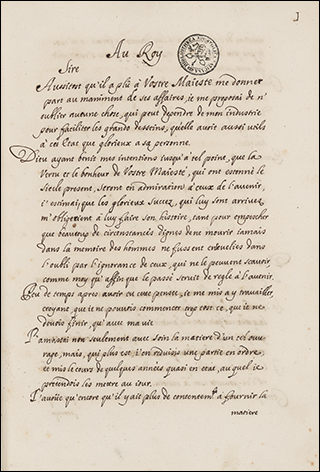 Au Roy
Sire
Aussitost qu'il a plû à Vostre Maiesté me donner
part au maniment de ses affaires, ie me proposai de n'
oublier aucune chose, qui peut dependre de mon industrie
pour faciliter les grands desseins, qu'elle avoit aussi utils
à cet Estat que glorieux a sa personne.
Dieu ayant benit mes intentions iusqu'à tel point, que la
Vertu et le bonheur de Vostre Maiesté, qui ont estonné le
siecle present, seront en admiration à ceux de l'avenir,
i'estimai que les glorieux succez, qui luy sont arrivez
m'obligeoient à luy faire son histoire, tant pour empescher
que beaucoup de circonstances dignes de ne mourir iamais
dans la memoire des hommes ne fussent ensevelies dans
l'oubli par l'ignorance de ceux, qui ne le peuvent scavoir
comme moy qu'affin que le passé servit de regle à l'avenir.
Peu de temps apres avoir eu cette pensée, ie me mis a y travailler,
croyant que ie ne pouvois commencer trop tost ce, que ie ne
devois finir, qu'avec ma vie
I'amassai non seulement avec soin la matiere d'un tel ouv-
rage, mais, qui plus est, i'en réduisis une partie en ordre,
et mis le cours de quelques années quasi en estat, auquel ie
pretendois les mettre au iour.
I'avoüe qu'encore qu'il y ait plus de contentem.t à fournir la
matiere